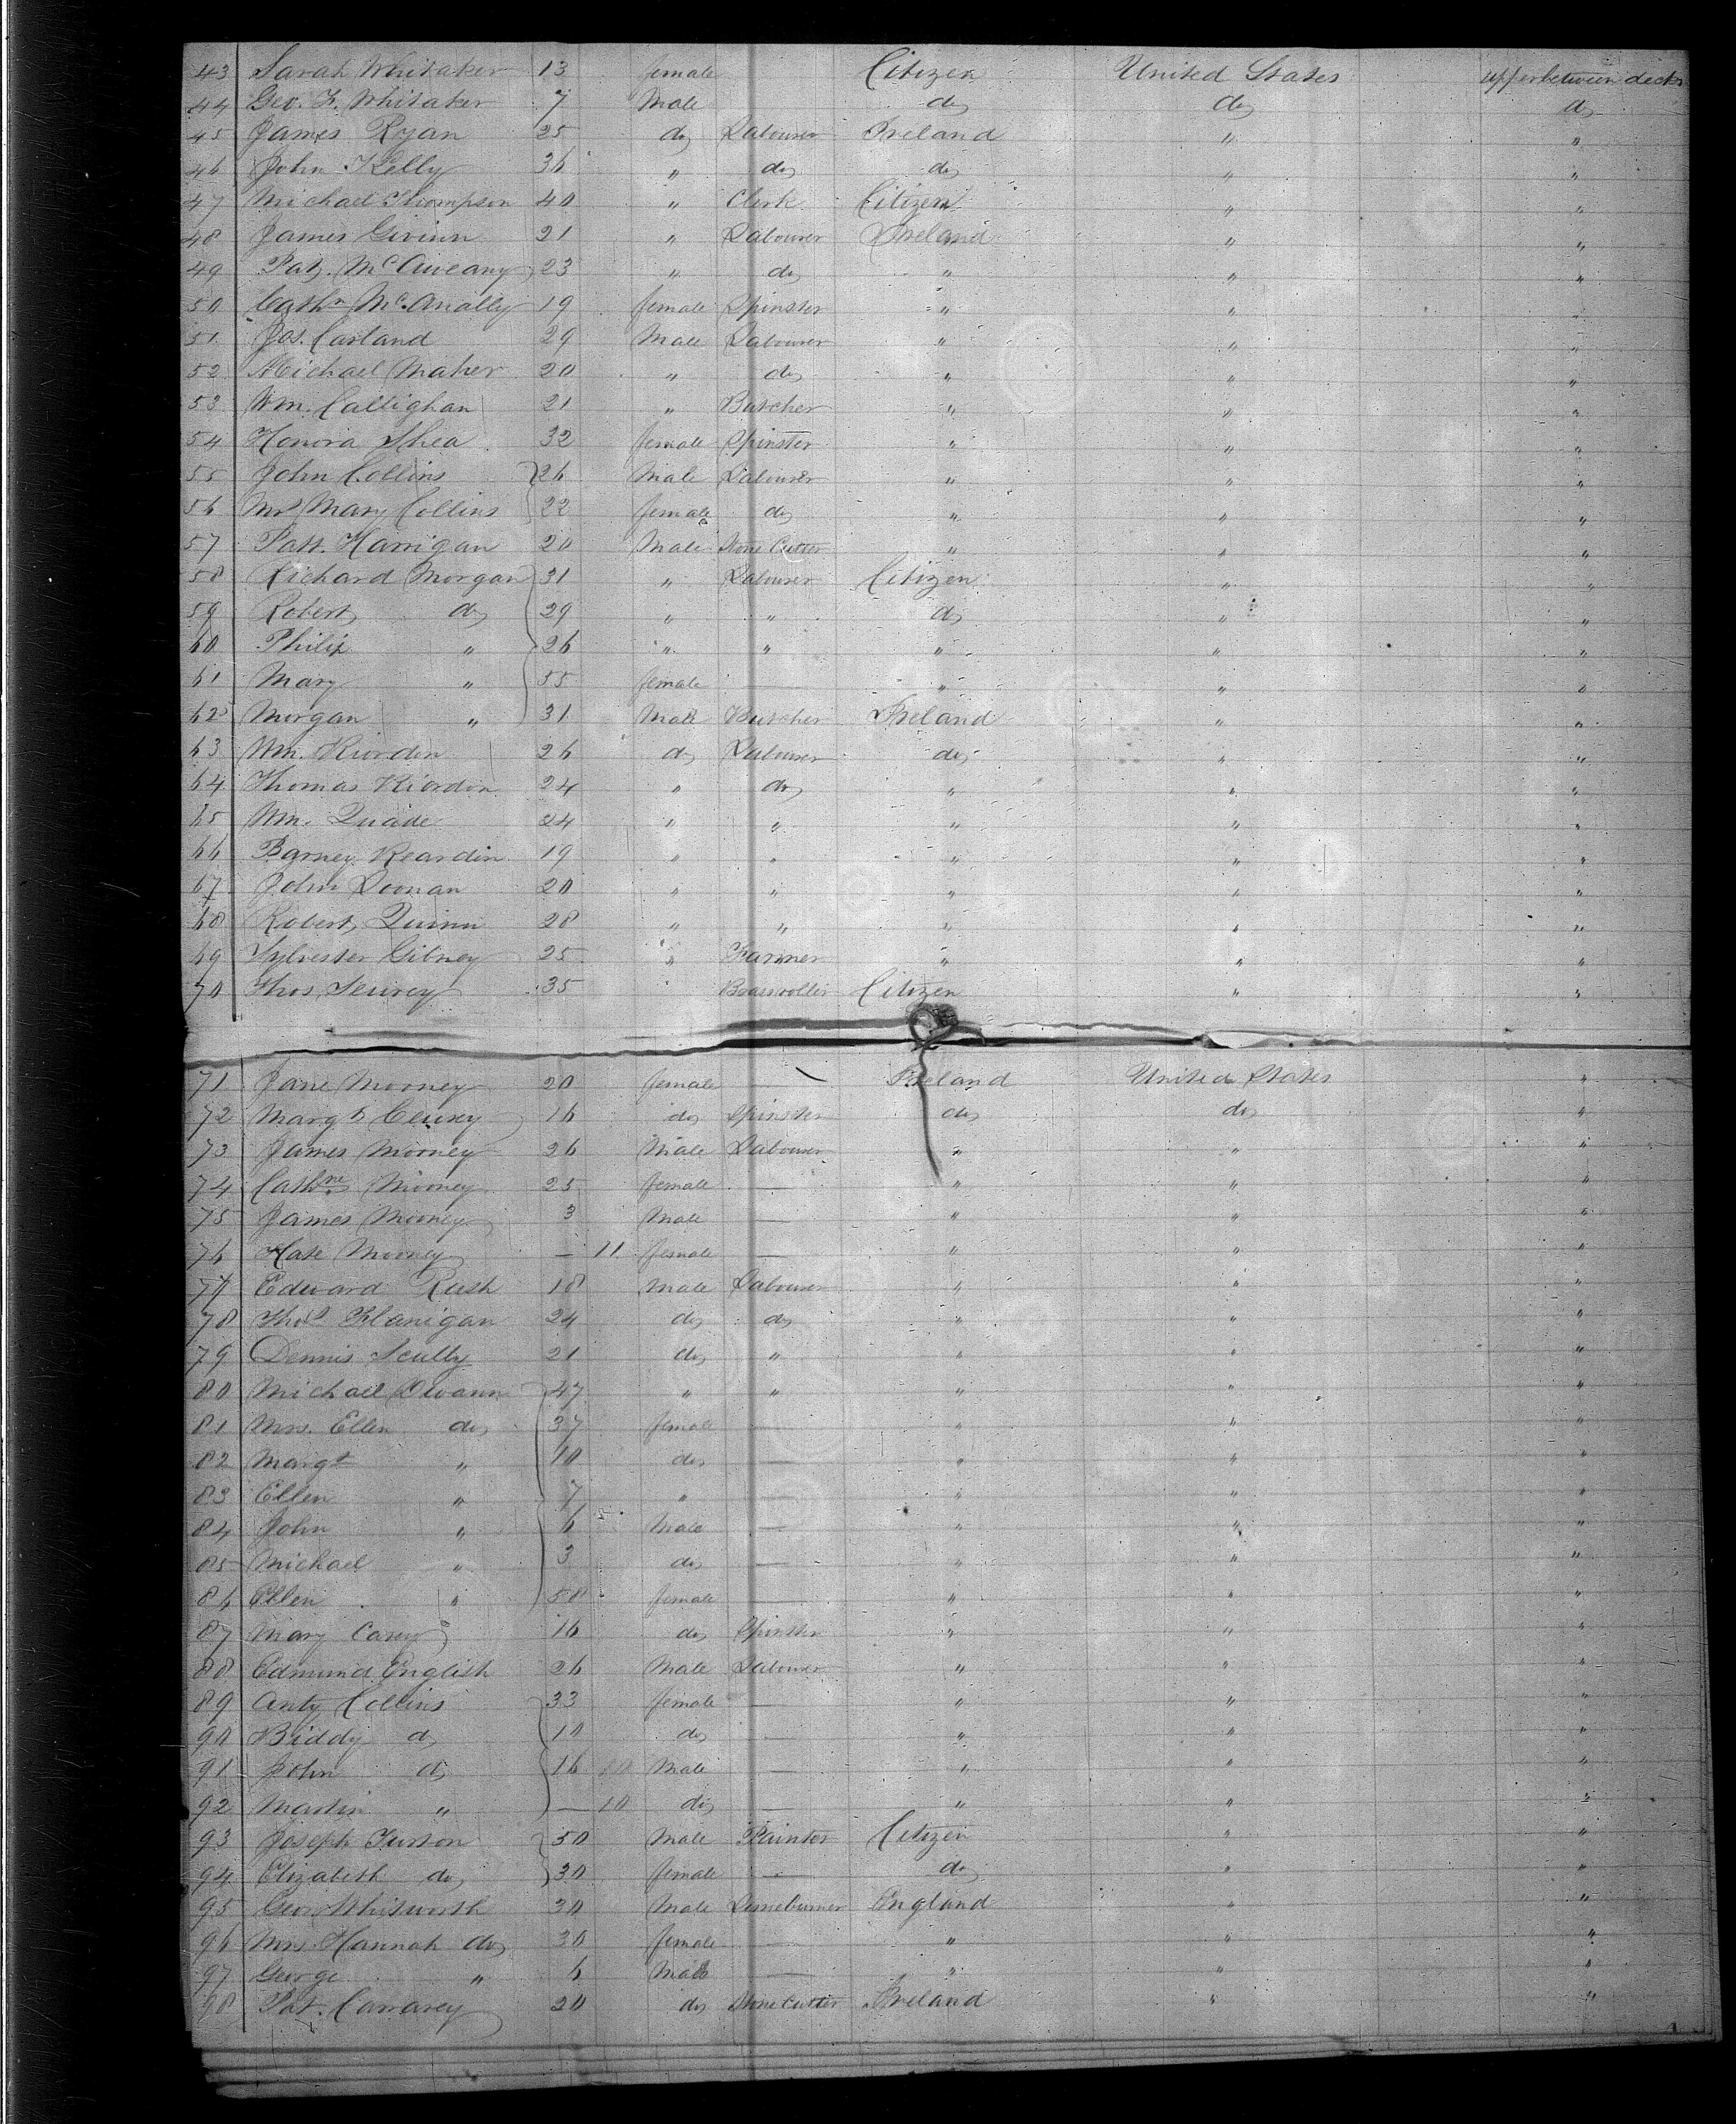 43 Sarah Whitaker 13 female Citizen United States upper between decks
44 Geo. F. Whitaker 7 Male do do do
45 James Ryan 25 do Labourer Ireland " "
46 John Kelly 36 " do do " "
47 Michael Thompson 40 " Clerk Citizen " "
48 James Givinn 21 " Labourer Ireland " "
49 Pat. Mc 23 " do " " "
50 Cathn McAnally 19 female Spinster " " "
51 Jas. Carland 29 Male Labourer " " "
52 Michael Maher 20 " do " " "
53 Wm. Callighan 21 " Butcher " " "
54 Honora Shea 32 female Spinster " " "
55 John Collins 26 Male Labourer " " "
56 Mrs Mary Collins 22 female do " " "
57 Patt. Harrigan 20 Male Stone Cutter " " "
58 Richard Morgan 31 " Labourer Citizen " "
59 Robert do 29 " " do " "
60 Philip " 26 " " " " "
61 Mary " 55 female — " " "
62 Morgan " 31 Male Butcher Ireland " "
63 Wm. Riordon 26 do Labourer do " "
64 Thomas Riordon 24 " do " " "
65 Wm. Quade 24 " " " " "
66 Barney Reardin 19 " " " " "
67 John Doonan 20 " " " " "
68 Robert Quinn 28 " " " " "
69 Sylvester Gibney 25 " Farmer " " "
70 Thos. 35 Brassroller Citizen " "
71 Jane Mooney 20 female — Ireland United States "
72 Margt 16 do Spinster do do "
73 James Mooney 26 Male Labourer " " "
74 Cathne Mooney 25 female — " " "
75 James Mooney 3 Male — " " "
76 Kate Mooney — 11 female — " " "
77 Edward Rush 18 Male Labourer " " "
78 Thos Flanigan 24 do do " " "
79 Dennis Scully 21 do " " " "
80 Michael 47 " " " " "
81 Mrs. Ellen do 37 female — " " "
82 Margt " 10 do — " " "
83 Ellen " 7 " — " " "
84 John " 6 Male — " " "
85 Michael " 3 do — " " "
86 Ellen " 50 female — " " "
87 Mary Casey 16 do Spinster " " "
88 Edmund English 26 Male Labourer " " "
89 Anty Collins 33 female — " " "
90 Biddy do 10 do — " " "
91 John do 16 Male — " " "
92 Martin " — 10 do — " " "
93 Joseph Furson 50 Male Painter Citizen " "
94 Elizabeth do 30 female — do " "
95 Geo. Whitworth 30 Male Limeburner England " "
96 Mrs. Hannah do 30 female — " " "
97 George " 6 Male — " " "
98 Pat. Carrarey 20 do Stone Cutter Ireland " "